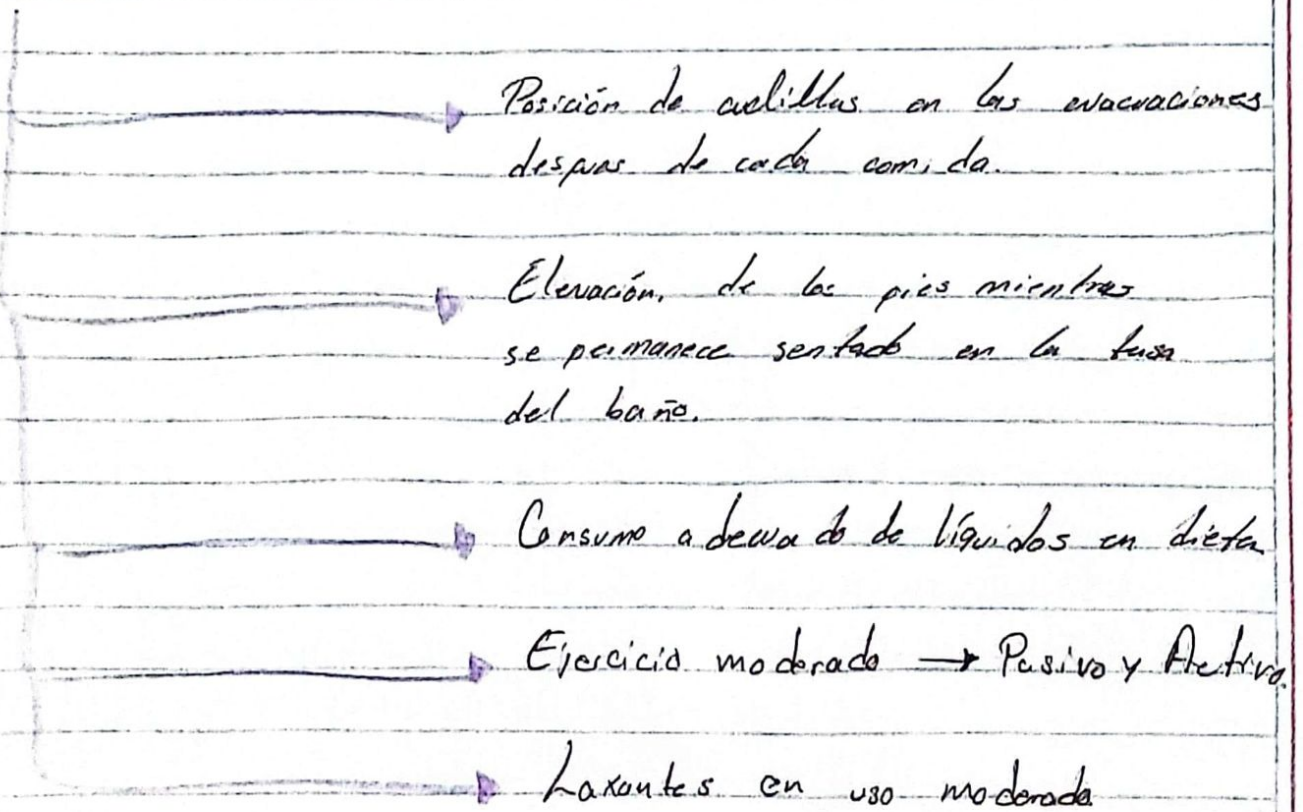 Posición de cuclillas en las evacuaciones
despues de cada comida.
Elevación, de los pies mientras
se permanece sentado en la tasa
del baño.
Consumo adecuado de líquidos en dieta
Ejercicio moderado → Pasivo y Activo.
Laxantes en uso moderado